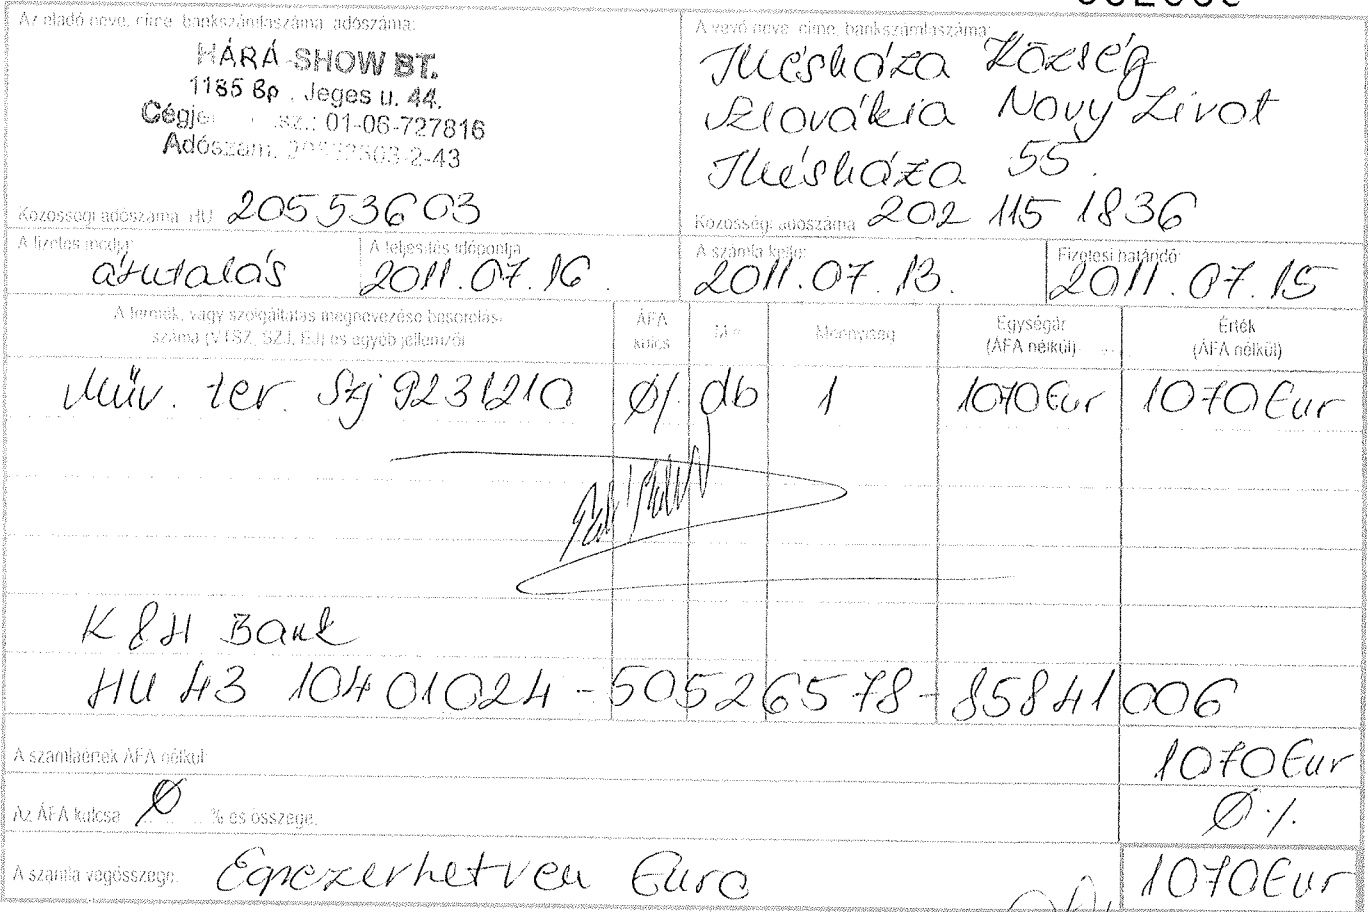 Az eladó neve, címe, bankszámlaszáma, adószáma:
HÁRÁ-SHOW BT.
1185 Bp., Jeges u. 44.
sz.: 01-06-727816
Adószám: 3-2-43
Közösségi adószáma: HU 20553603
A vevő neve, címe, bankszámlaszáma:
Illésháza Község
Szlovákia Novy Zivot
Illésháza 55.
Közösségi adószáma 202 115 1836
A fizetés módja: átutalás
A teljesítés időpontja 2011.07.16.
A számla kelte: 2011.07.13.
Fizetési határidő: 2011.07.15
A termék, vagy szolgáltatás megnevezése besorolási száma (VTSZ, SZJ, EJ) és egyéb jellemzői
ÁFA kulcs
M.e.
Mennyiség
Egységár (ÁFA nélkül)
Érték (ÁFA nélkül)
Műv. ter. Szj 9231210 Ø% db 1 1070 Eur 1070 Eur
K&H Bank
HU 43 10401024-50526578-85841006
A számlaérték ÁFA nélkül: 1070 Eur
Az ÁFA kulcsa Ø % és összege: Ø %
A számla végösszege: Egyezerhetven Euro 1070 Eur